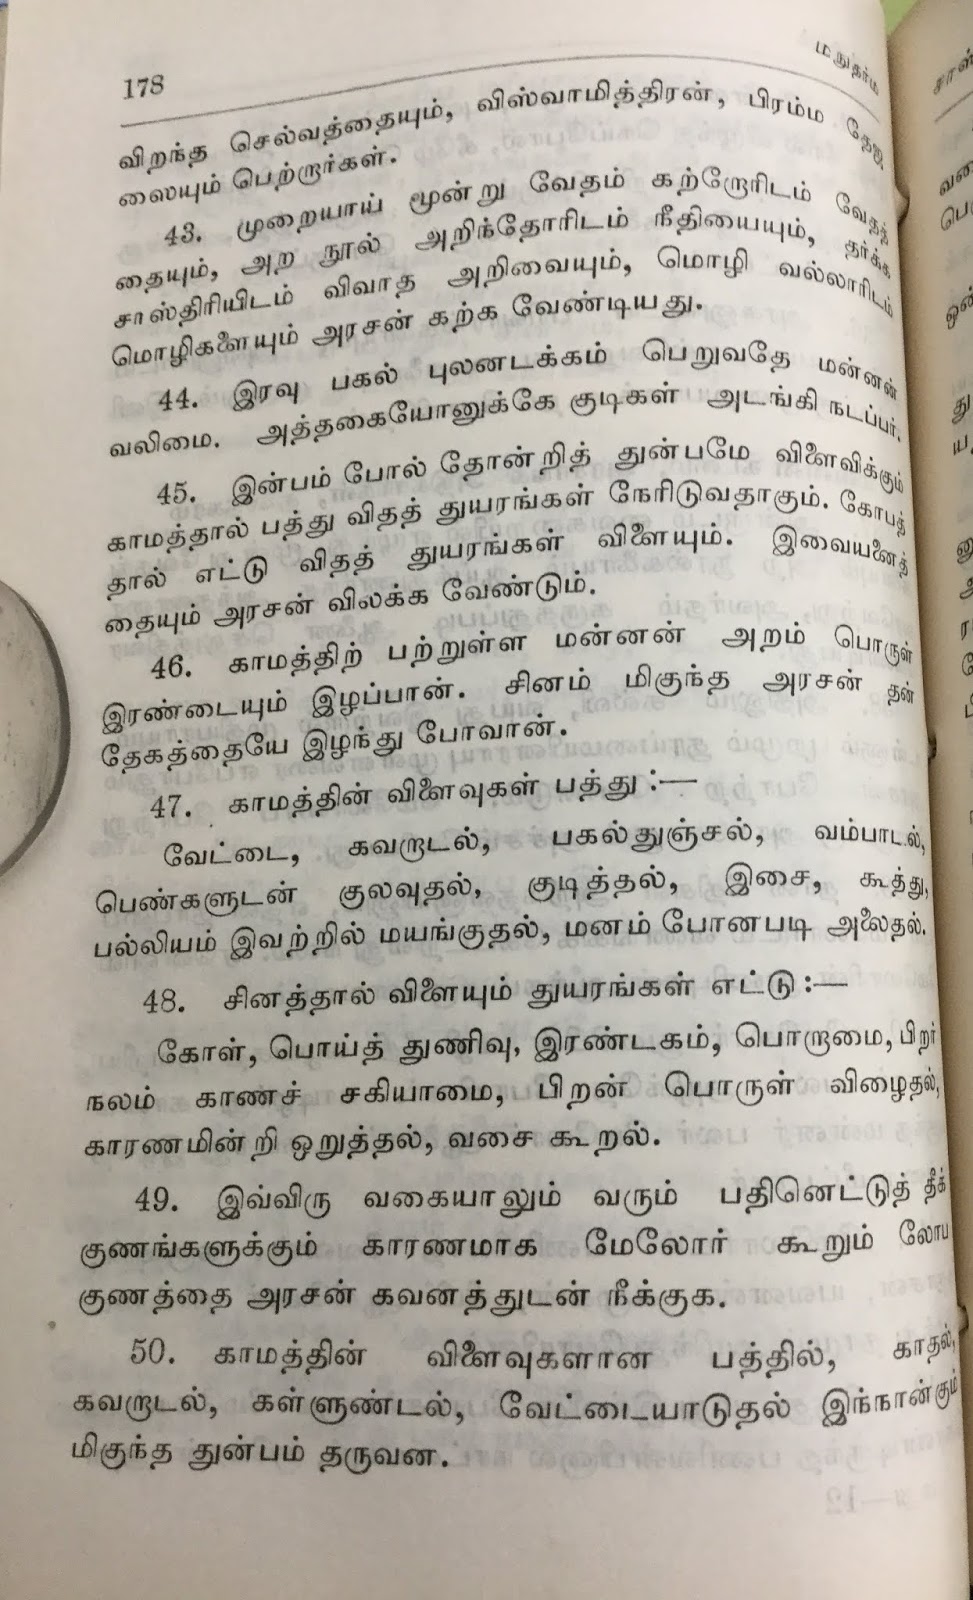 178
மநுதர்ம
விறந்த செல்வத்தையும், விஸ்வாமித்திரன், பிரம்ம தேஜ
ஸையும் பெற்றார்கள்.
43. முறையாய் மூன்று வேதம் கற்றோரிடம் வேதத்
தையும், அற நூல் அறிந்தோரிடம் நீதியையும், தர்க்க
சாஸ்திரியிடம் விவாத அறிவையும், மொழி வல்லாரிடம்
மொழிகளையும் அரசன் கற்க வேண்டியது.
44. இரவு பகல் புலனடக்கம் பெறுவதே மன்னன்
வலிமை. அத்தகையோனுக்கே குடிகள் அடங்கி நடப்பர்.
45. இன்பம் போல் தோன்றித் துன்பமே விளைவிக்கும்
காமத்தால் பத்து விதத் துயரங்கள் நேரிடுவதாகும். கோபத்
தால் எட்டு விதத் துயரங்கள் விளையும். இவையனைத்
தையும் அரசன் விலக்க வேண்டும்.
46. காமத்திற் பற்றுள்ள மன்னன் அறம் பொருள்
இரண்டையும் இழப்பான். சினம் மிகுந்த அரசன் தன்
தேகத்தையே இழந்து போவான்.
47. காமத்தின் விளைவுகள் பத்து :—
வேட்டை, கவறாடல், பகல்துஞ்சல், வம்பாடல்,
பெண்களுடன் குலவுதல், குடித்தல், இசை, கூத்து,
பல்லியம் இவற்றில் மயங்குதல், மனம் போனபடி அலைதல்.
48. சினத்தால் விளையும் துயரங்கள் எட்டு :—
கோள், பொய்த் துணிவு, இரண்டகம், பொறாமை, பிறர்
நலம் காணச் சகியாமை, பிறன் பொருள் விழைதல்,
காரணமின்றி ஒறுத்தல், வசை கூறல்.
49. இவ்விரு வகையாலும் வரும் பதினெட்டுத் தீக்
குணங்களுக்கும் காரணமாக மேலோர் கூறும் லோப
குணத்தை அரசன் கவனத்துடன் நீக்குக.
50. காமத்தின் விளைவுகளான பத்தில், காதல்,
கவறாடல், கள்ளுண்டல், வேட்டையாடுதல் இந்நான்கும்
மிகுந்த துன்பம் தருவன.